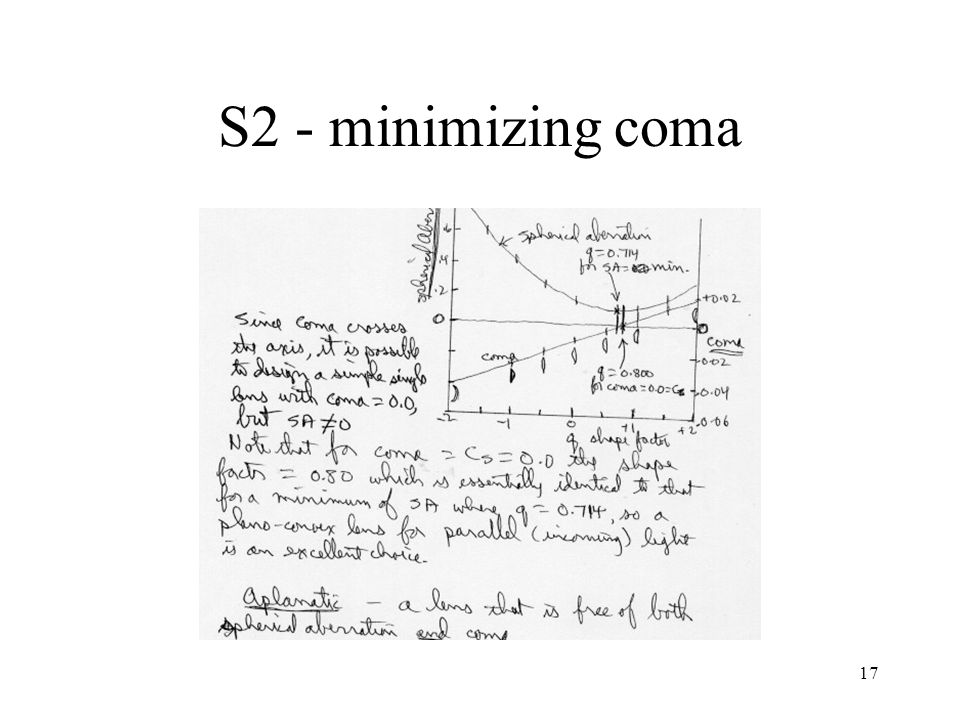 S2 - minimizing coma
spherical aber
.6
.4
.2
0
spherical aberration
q=0.714
for SA= min.
+0.02
0
coma
-0.02
-0.04
-0.06
coma
q=0.800
for coma=0.0=Cs
-2 -1 0 +1 +2
q shape factor
Since coma crosses
the axis, it is possible
to design a simple single
lens with coma = 0.0,
but SA≠0
Note that for coma = Cs = 0.0 the shape
factor = 0.80 which is essentially identical to that
for a minimum of SA where q = 0.714, so a
plano-convex lens for parallel (incoming) light
is an excellent choice.
Aplanatic - a lens that is free of both
spherical aberration and coma
17